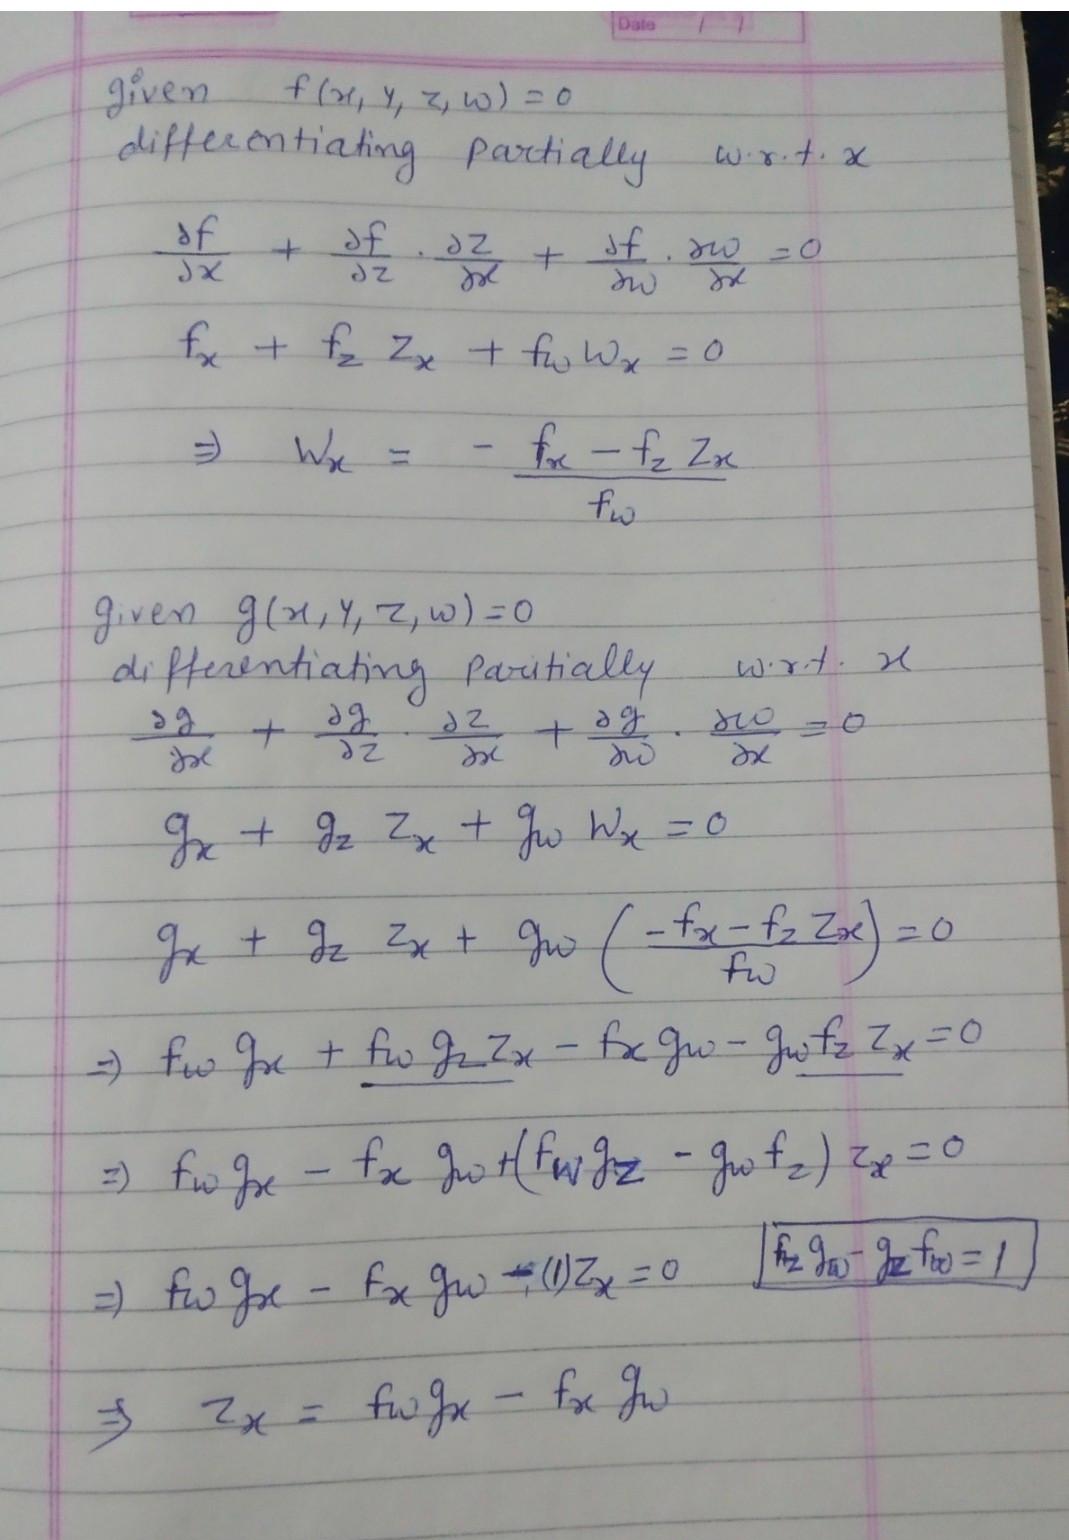 Date / /
given f(x, y, z, w) = 0
differentiating partially w.r.t. x
∂f/∂x + ∂f/∂z · ∂z/∂x + ∂f/∂w · ∂w/∂x = 0
f_x + f_z z_x + f_w w_x = 0
⇒ w_x = - (f_x - f_z z_x)/f_w
given g(x, y, z, w) = 0
differentiating paritially w.r.t. x
∂g/∂x + ∂g/∂z · ∂z/∂x + ∂g/∂w · ∂w/∂x = 0
g_x + g_z z_x + g_w w_x = 0
g_x + g_z z_x + g_w ((-f_x - f_z z_x)/f_w) = 0
⇒ f_w g_x + f_w g_z z_x - f_x g_w - g_w f_z z_x = 0
⇒ f_w g_x - f_x g_w + (f_w g_z - g_w f_z) z_x = 0
⇒ f_w g_x - f_x g_w - (1) z_x = 0 f_z g_w - g_z f_w = 1
⇒ z_x = f_w g_x - f_x g_w